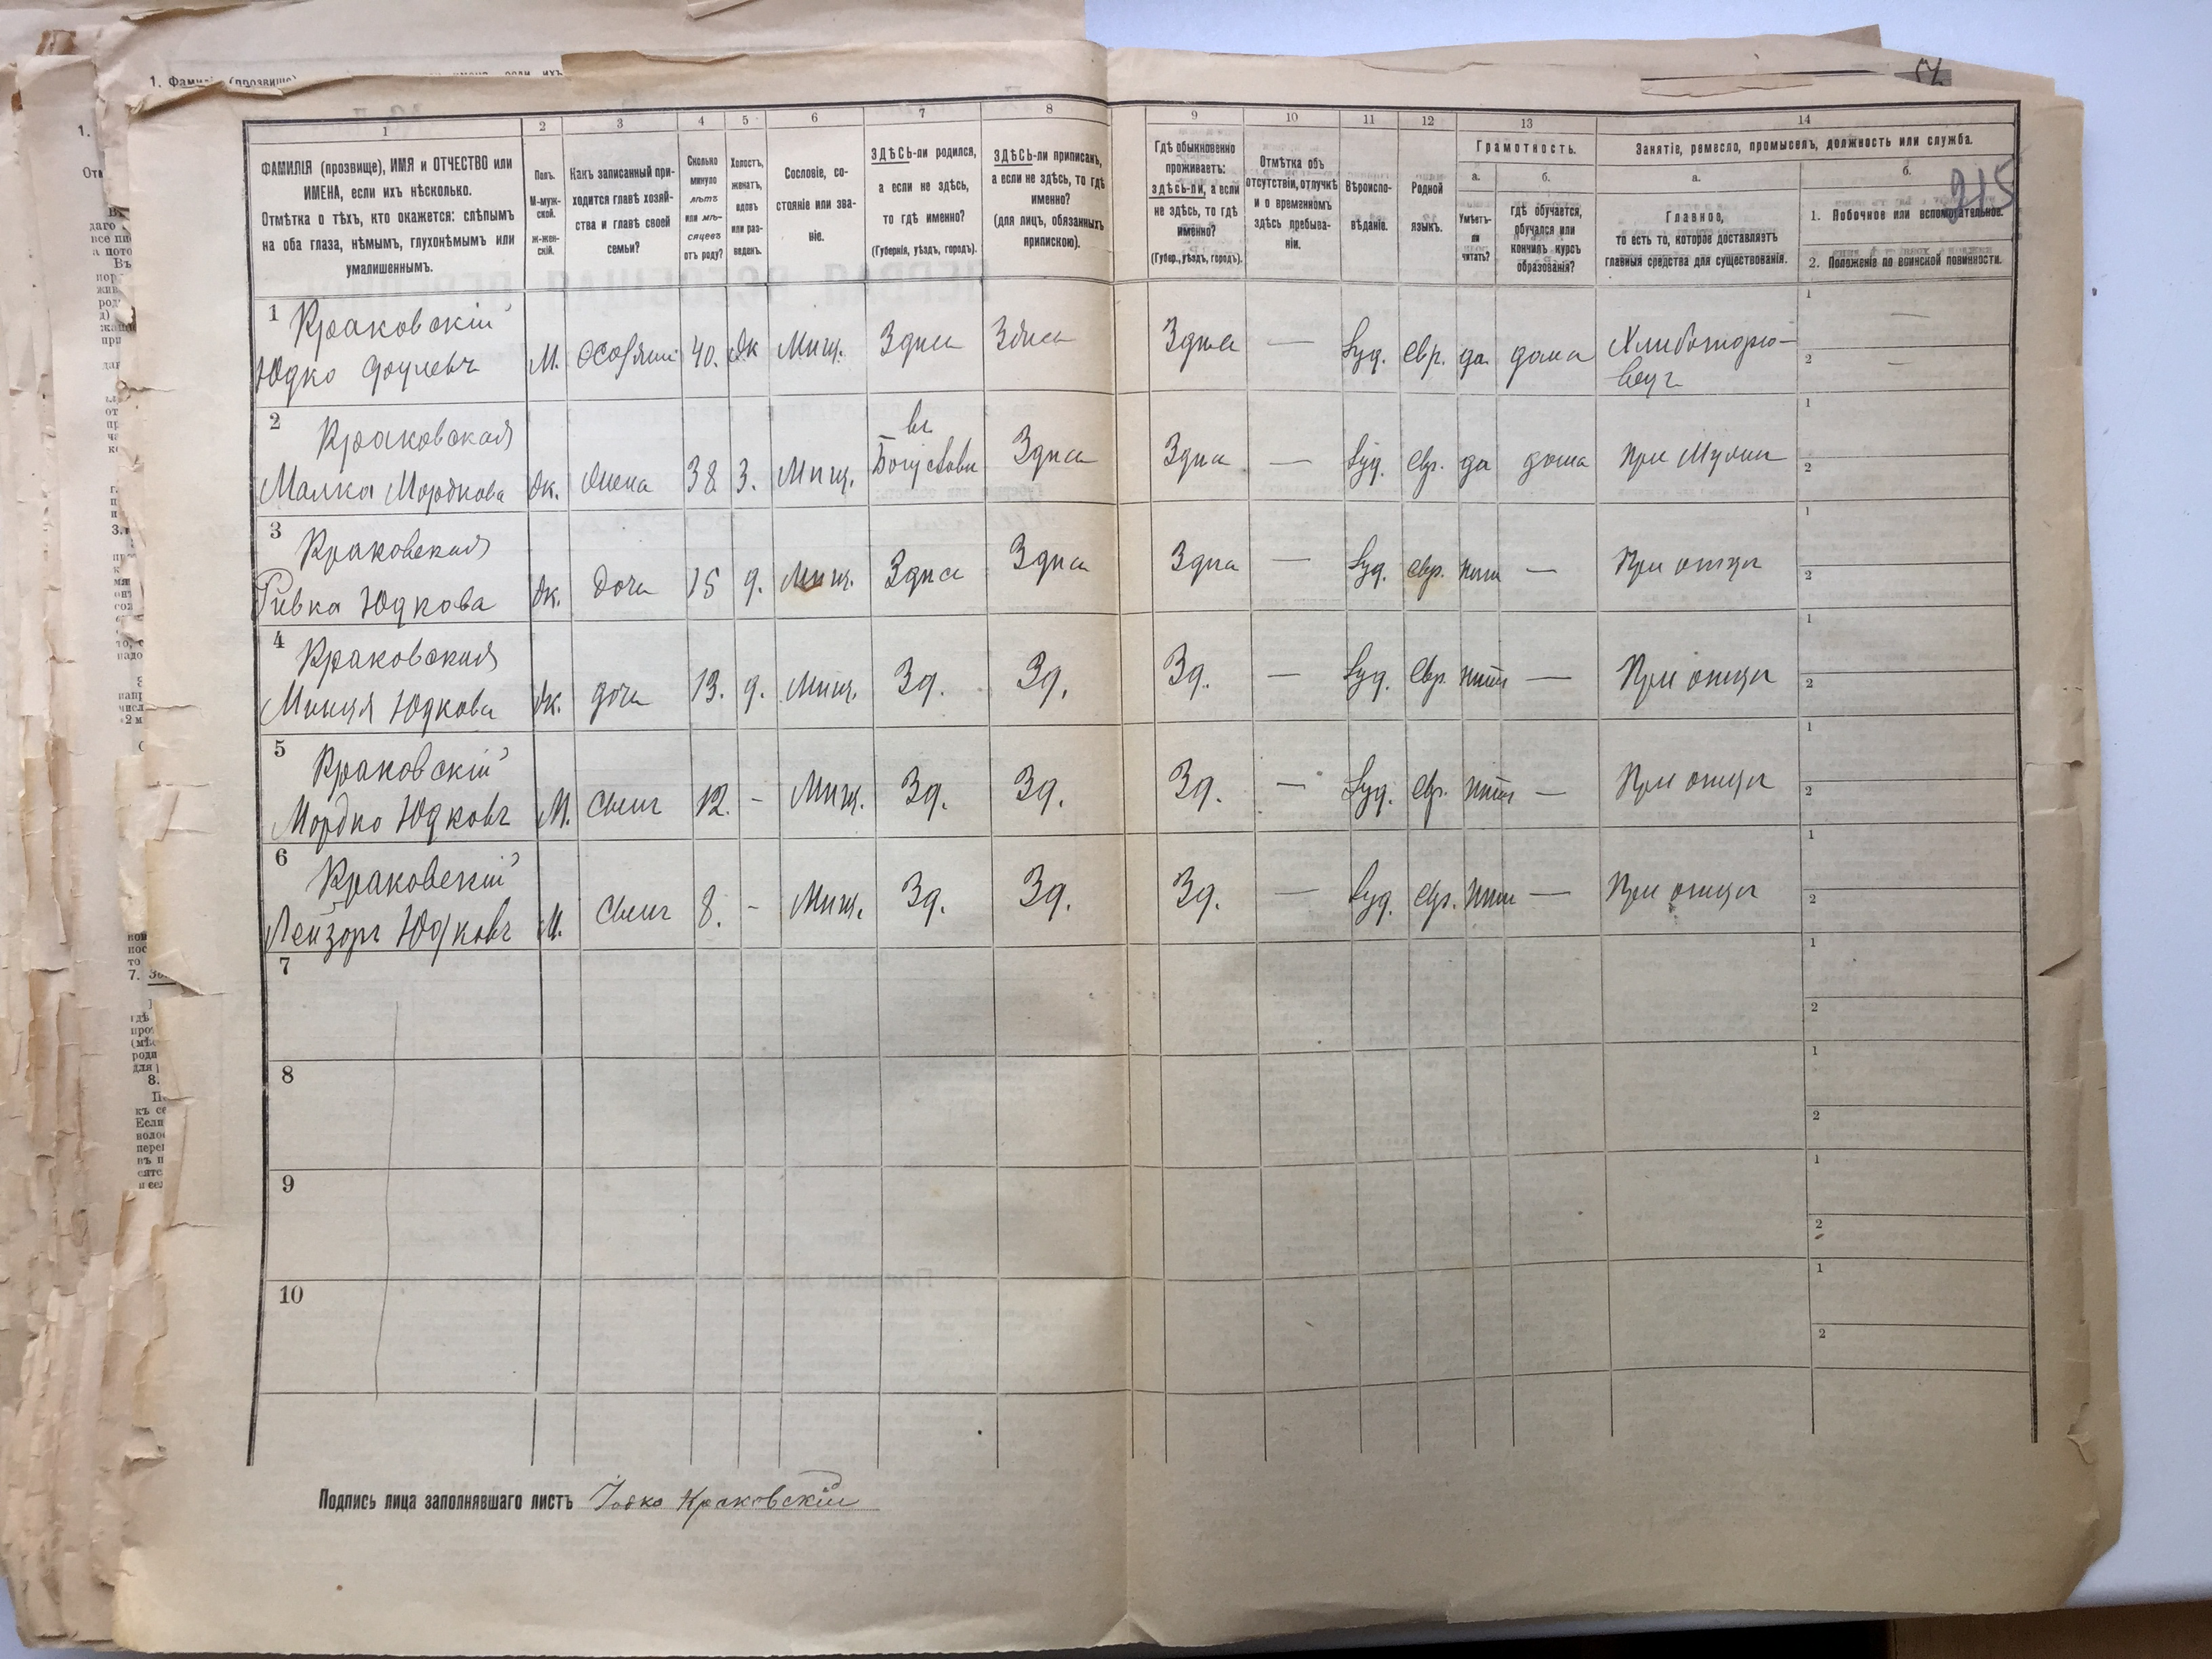 1. Фамилія (прозвище)
1 2 3 4 5 6 7 8 9 10 11 12 13 14
ФАМИЛІЯ (прозвище), ИМЯ и ОТЧЕСТВО или ИМЕНА, если ихъ нѣсколько.
Отмѣтка о тѣхъ, кто окажется: слѣпымъ на оба глаза, нѣмымъ, глухонѣмымъ или умалишеннымъ.
Полъ. М-мужской. ж-женскій.
Какъ записанный приходится главѣ хозяйства и главѣ своей семьи?
Сколько минуло лѣтъ или мѣсяцевъ отъ роду?
Холостъ, женатъ, вдовъ или разведенъ.
Сословіе, состояніе или званіе.
ЗДѢСЬ-ли родился, а если не здѣсь, то гдѣ именно? (Губернія, уѣздъ, городъ).
ЗДѢСЬ-ли приписанъ, а если не здѣсь, то гдѣ именно? (для лицъ, обязанныхъ припискою).
Гдѣ обыкновенно проживаетъ: здѣсь-ли, а если не здѣсь, то гдѣ именно? (Губер., уѣздъ, городъ).
Отмѣтка объ отсутствіи, отлучкѣ и о временномъ здѣсь пребываніи.
Вѣроисповѣданіе.
Родной языкъ.
Грамотность.
а. Умѣетъ-ли читать?
б. гдѣ обучается, обучался или кончилъ курсъ образованія?
Занятіе, ремесло, промыселъ, должность или служба.
а. Главное, то есть то, которое доставляетъ главныя средства для существованія.
б.
1. Побочное или вспомогательное.
2. Положеніе по воинской повинности.
215
1 Краковскій
Юдко М. 40. Мищ. Здиса Здиса Здиса — Іуд. Евр. да дома
1 —
2 —
2 Краковская
Малка Мордкова жк. жена 38 З. Мищ. Здиса Здиса — Іуд. Евр. да дома При
1
2
3 Краковская
Ривка Юдкова жк. дочь 15 д. Мищ. Здиса Здиса Здиса — Іуд. Евр. — При отци
1
2
4 Краковская
Юдкова жк. дочь 13. д. Мищ. Зд. Зд. Зд. — Іуд. Евр. — При отци
1
2
5 Краковскій
Мордко Юдковъ М. Сынъ 12. - Мищ. Зд. Зд. Зд. — Іуд. Евр. — При отци
1
2
6 Краковскій
Лейзоръ Юдковъ М. Сынъ 8. - Мищ. Зд. Зд. Зд. — Іуд. Евр. — При отци
1
2
7
1
2
8
1
2
9
1
2
10
1
2
Подпись лица заполнявшаго листъ Юдко Краковскій